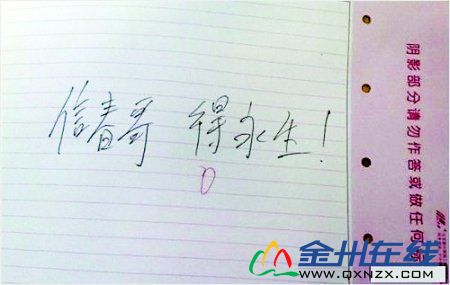 信春哥 得永生!
0
阴影部分请勿作答或做任何标
金州在线
WWW.QXNZX.COM